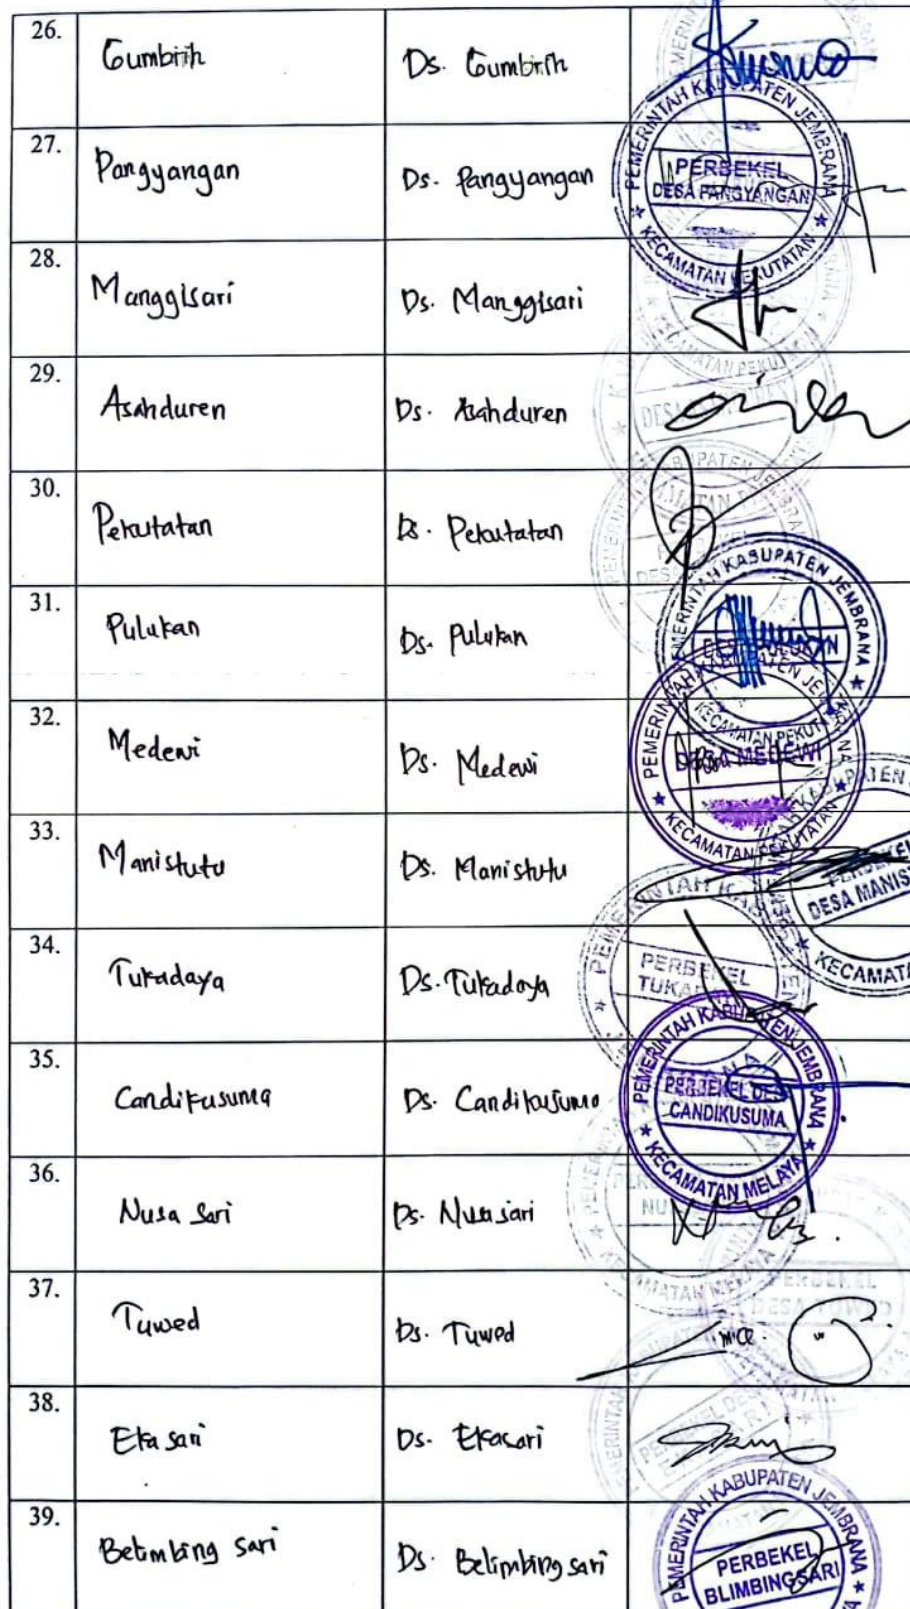 26. Gumbrih Ds. Gumbrih
27. Pangyangan Ds. Pangyangan
PEMERINTAH KABUPATEN JEMBRANA
PERBEKEL
DESA PANGYANGAN
KECAMATAN PEKUTATAN
28. Manggisari Ds. Manggisari
29. Asahduren Ds. Asahduren
30. Pekutatan Ds. Pekutatan
31. Pulukan Ds. Pulukan
PEMERINTAH KABUPATEN JEMBRANA
32. Medewi Ds. Medewi
DESA MEDEWI
KECAMATAN PEKUTATAN
33. Manistutu Ds. Manistutu
DESA MANIS
KECAMATA
34. Tukadaya Ds. Tukadaya
PERBEKEL
35. Candikusuma Ds. Candikusuma
PEMERINTAH KABUPATEN JEMBRANA
PERBEKEL DESA
CANDIKUSUMA
KECAMATAN MELAYA
36. Nusa Sari Ds. Nusasari
37. Tuwed Ds. Tuwed
PERBEKEL
DESA TUWED
38. Eka sari Ds. Ekasari
39. Belimbing sari Ds. Belimbing sari
PEMERINTAH KABUPATEN JEMBRANA
PERBEKEL
BLIMBINGSARI